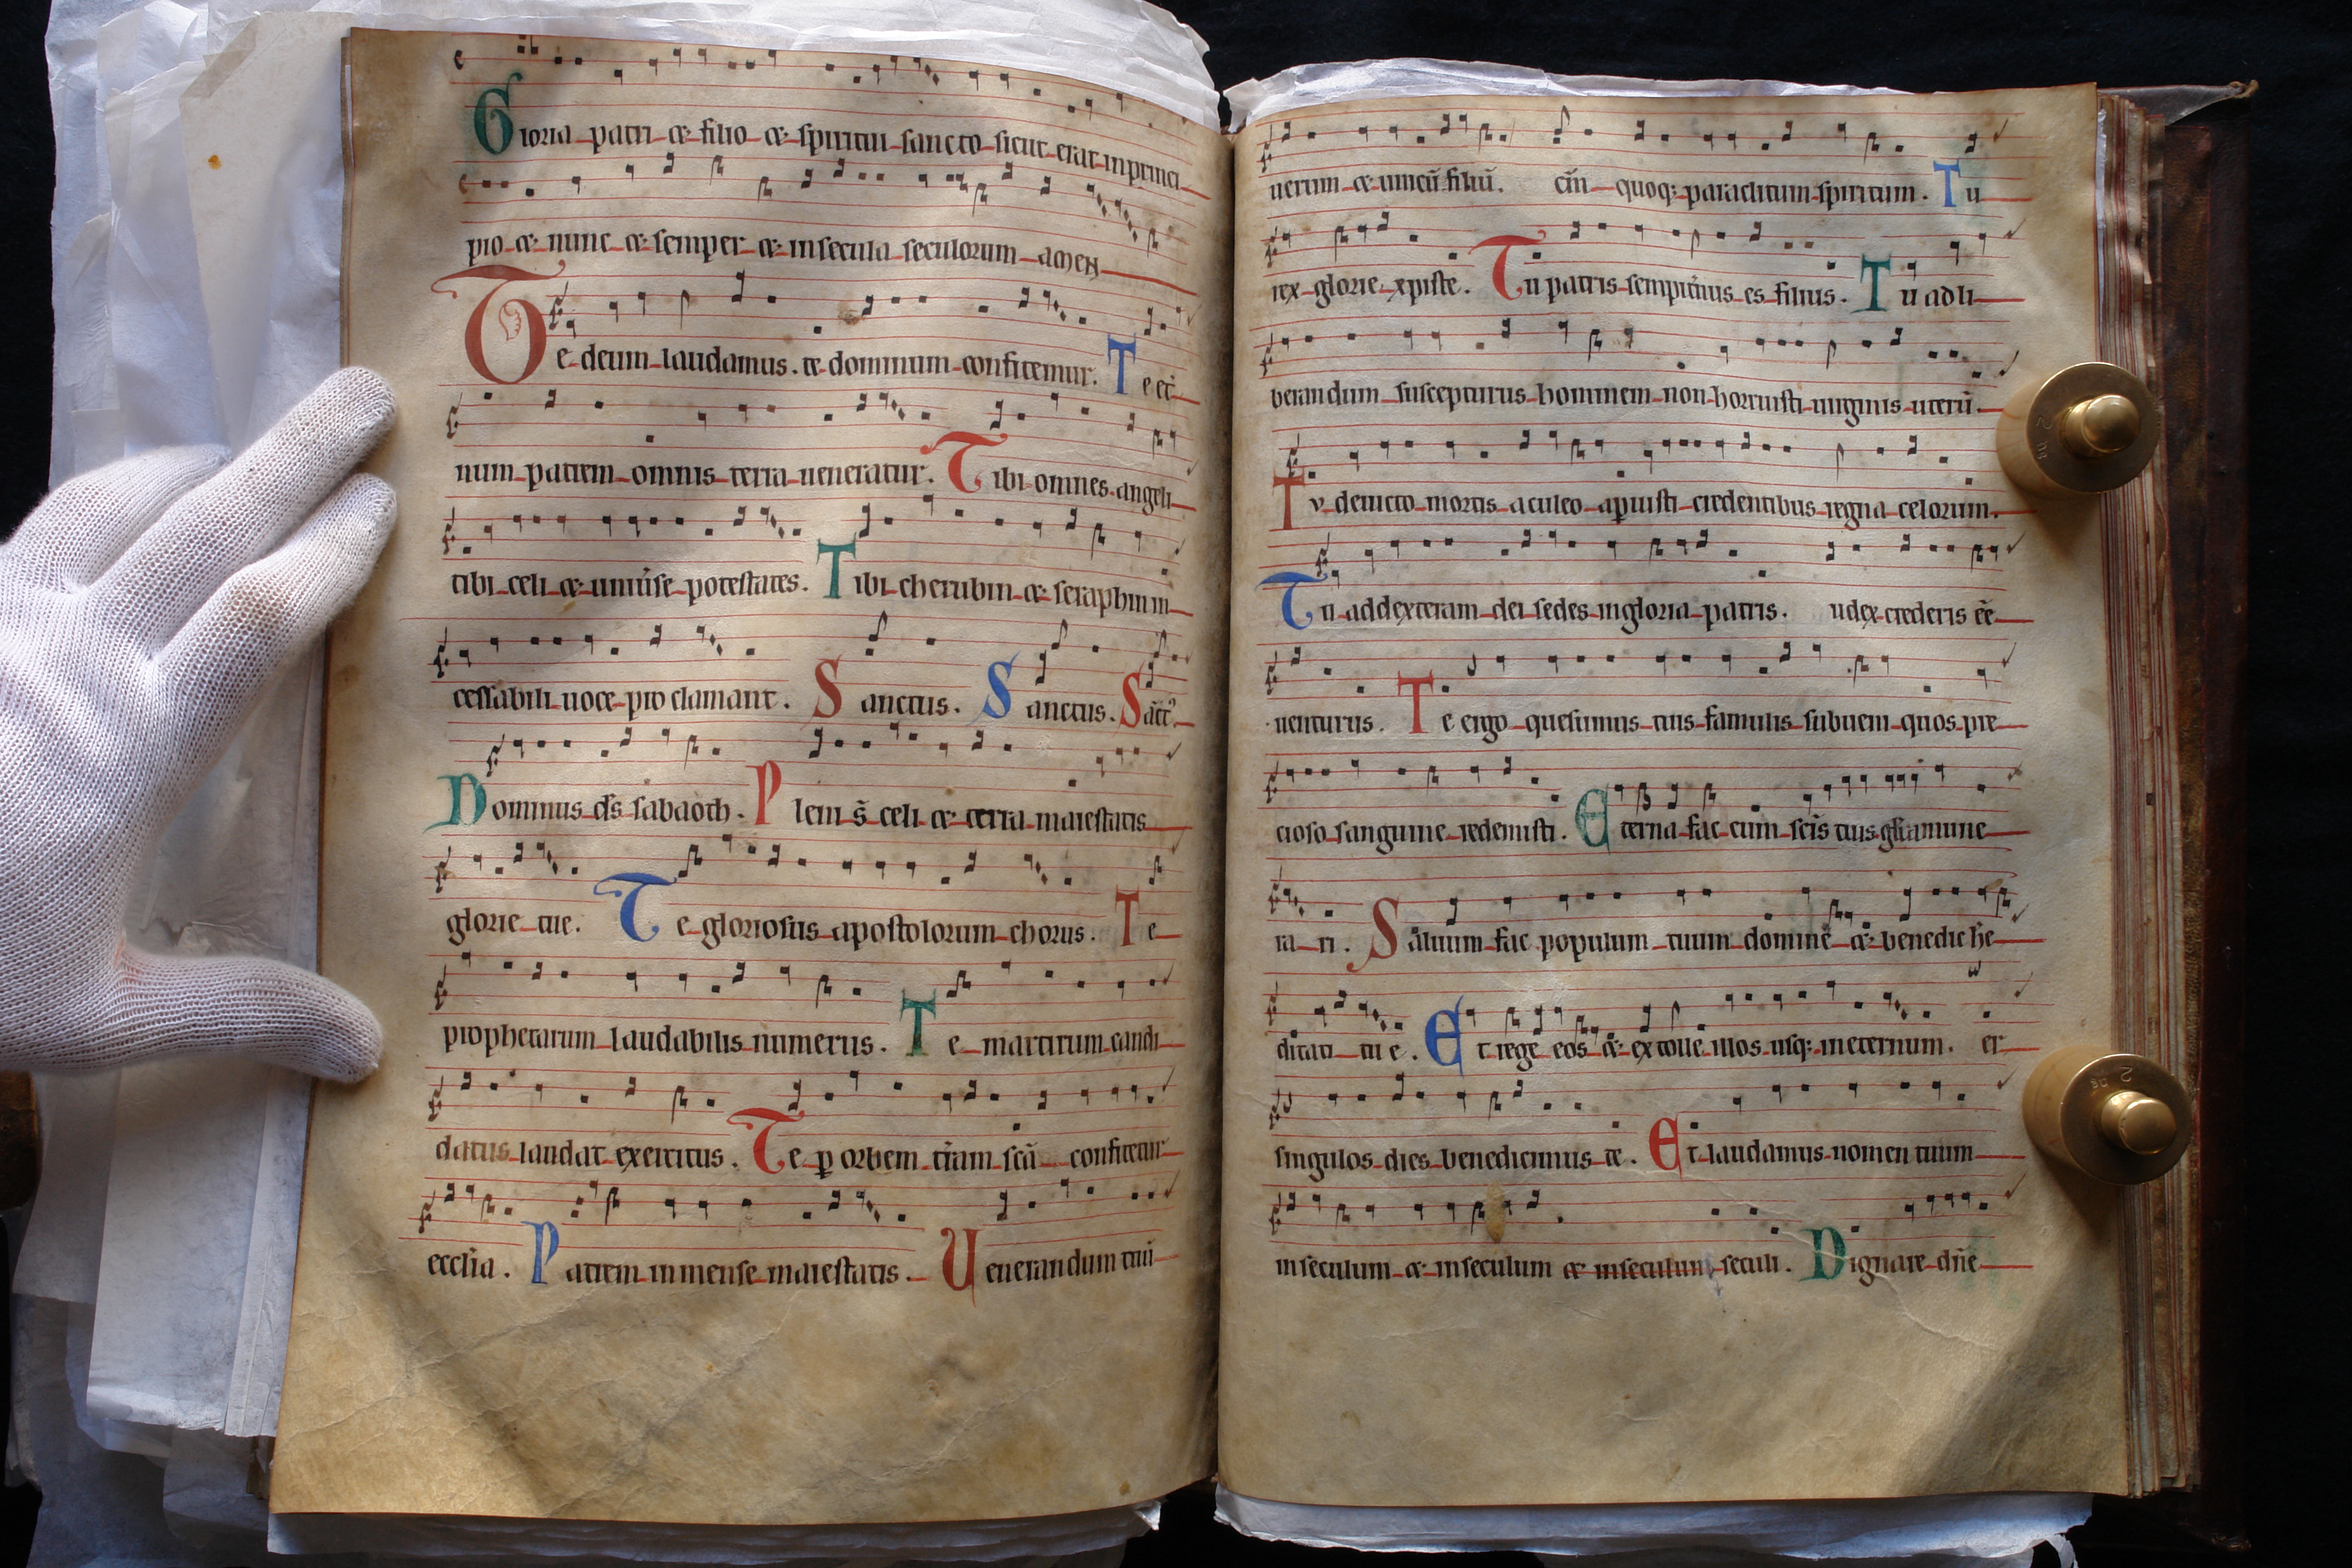 Gloria patri & filio & spiritui sancto sicut erat in princi
pio & nunc & semper & in secula seculorum amen
Te deum laudamus. te dominum confitemur. Te et̄
num patrem omnis terra ueneratur. Tibi omnes angeli
tibi celi & uniũse potestates. Tibi cherubin & seraphim in
cessabili uoce proclamant. Sanctus. Sanctus. Sāct᾽
Dominus ds̄ sabaoth. Pleni s̄ celi & terra maiestatis
glorie tue. Te gloriosus apostolorum chorus. Te
prophetarum laudabilis numerus. Te martirum candi
datus laudat exercitus. Te ꝑ orbem tr̄am scā confitetur
eccl̄ia. Patrem inmense maiestatis. Uenerandum tuū
uerum & unicū filiū. cm̄ quoq; paraclitum spiritum. Tu
rex glorie xpiste. Tu patris sempit̄nus es filius. Tu ad li
berandum suscepturus hominem non horruisti uirginis uterū.
Tv deuicto mortis aculeo aꝑuisti credentibus regna celorum.
Tu addexteram dei sedes ingloria patris. udex crederis eē
uenturus. Te ergo quesumus tuis famulis subueni quos pre
cioso sanguine redemisti. Eterna fac cum scīs tuis gl̄ia mune
ra ri. Saluum fac populum tuum domine & benedic he
ditati tu e. Et rege eos & extolle illos usq; ineternum. er
singulos dies benedicimus te. Et laudamus nomen tuum
inseculum & inseculum & inseculum seculi. Dignare dn̄e
2
2